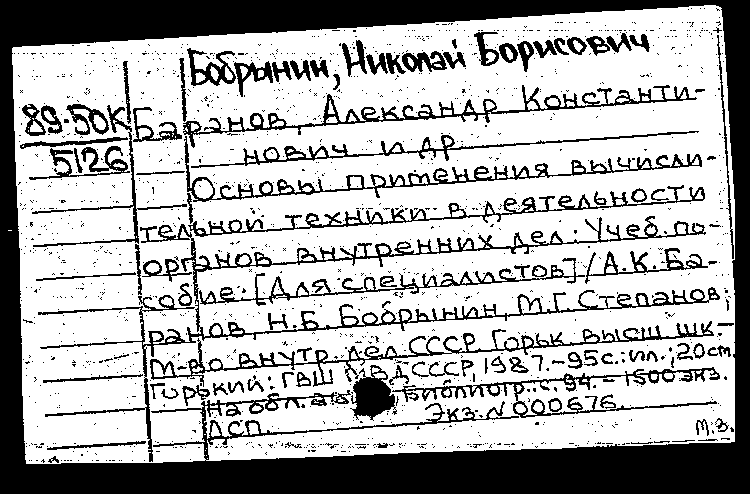 Бобрынин, Николай Борисович
89-50К
5126
Баранов, Александр Константи-
нович и др
Основы применения вычисли-
тельной техники в деятельности
органов внутренних дел: Учеб. по-
собие: [Для специалистов] / А.К. Ба-
ранов, Н.Б. Бобрынин, М.Г. Степанов;
М-во внутр. дел СССР Горьк. высш шк-
Горький: ГВШ МВД СССР, 1987.-95с.: ил.; 20см.
На обл. Библиогр.: с. 94.- 1500 экз.
ДСП. Экз. N 000676.
М.З.